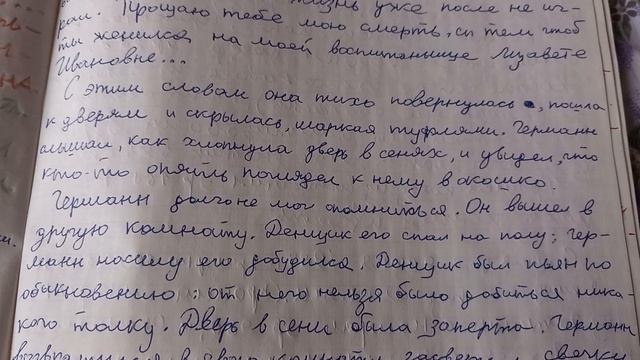 жизнь уже после не иг-
рал. Прощаю тебе мою смерть, с тем чтоб
ты женился на моей воспитаннице Лизавете
Ивановне...
С этим словам она тихо повернулась, пошла
к дверям и скрылась, шаркая туфлями. Германн
слышал, как хлопнула дверь в сенях, и увидел, что
кто-то опять поглядел к нему в окошко.
Германн долго не мог опомниться. Он вышел в
другую комнату. Денщик его спал на полу; Гер-
манн насилу его добудился. Денщик был пьян по
обыкновению: от него нельзя было добиться ника-
кого толку. Дверь в сени была заперта. Германн
возвратился в свою комнату, засветил свечку